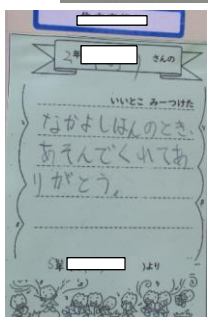 2年 さんの
いいとこ みーつけた
なかよしはんのとき、
あそんでくれてあ
りがとう。
5年 )より